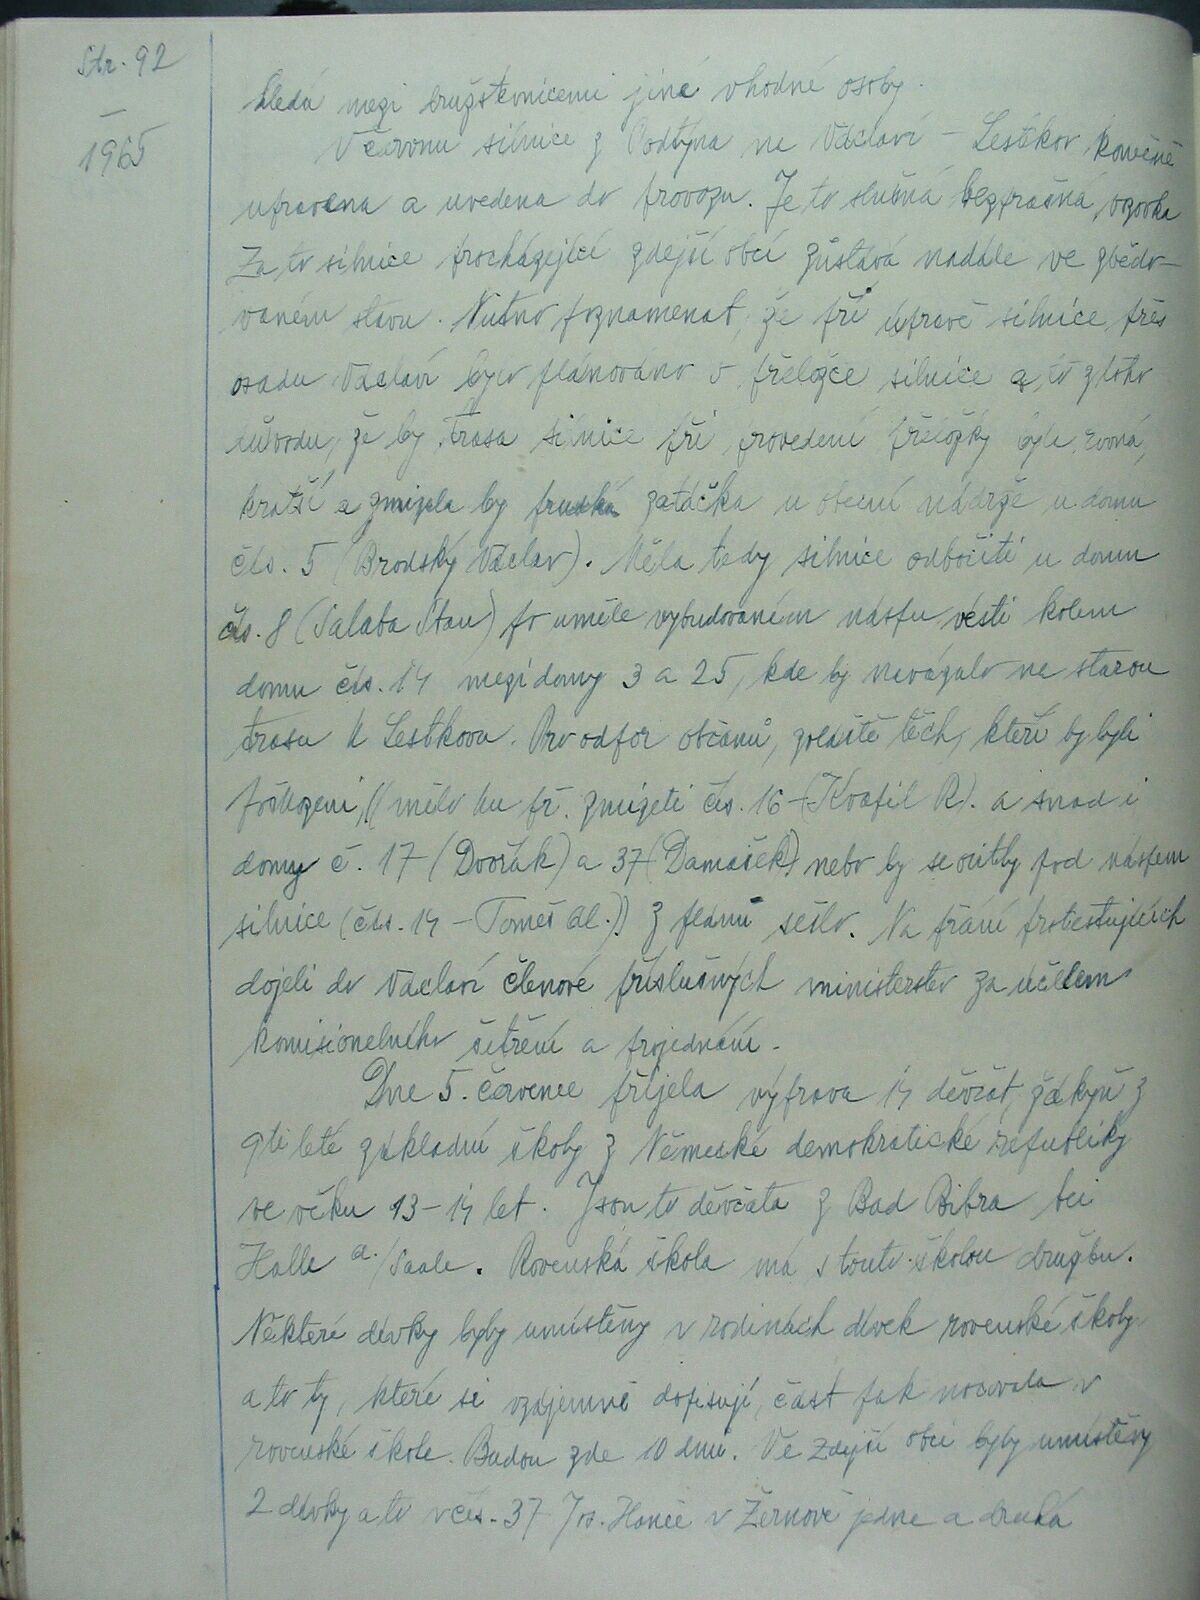 Str. 92
1965
hledá mezi družstevnicemi jiné vhodné osoby.
V červnu silnice z Podtýna na Václaví – Lestkov konečně
upravena a uvedena do provozu. Je to slušná bezprašná vozovka
Za to silnice procházející zdejší obcí zůstává nadále ve zbědo-
vaném stavu. Nutno poznamenat, že při úpravě silnice přes
osadu Václaví bylo plánováno o přeložce silnice a to z toho
důvodu, že by trasa silnice při provedení přeložky byla rovná,
kratší a zmizela by prudká zatáčka u obecní nádrže u domu
čís. 5 (Brodský Václav). Měla tedy silnice odbočiti u domu
čís. 8 (Salaba Stan) po uměle vybudovaném náspu vésti kolem
domu čís. 14 mezi domy 3 a 25, kde by navázalo na starou
trasu k Lestkovu. Pro odpor občanů, zvláště těch, kteří by byli
poškozeni, (( mělo ku př. zmizeti čís. 16 – (Kvapil R). a snad i
domy č. 17 (Dvořák) a 37 (Damašek) nebo by se ocitly pod náspem
silnice (čís. 14 – Tomeš Al.)) z plánu sešlo. Na přání protestujících
dojeli do Václaví členové příslušných ministerstev za účelem
komisionelního šetření a projednání.
Dne 5. července přijela výprava 14 děvčat, žákyň z
9ti leté základní školy z Německé demokratické republiky
ve věku 13–14 let. Jsou to děvčata z Bad Bibra bei
Halle a./Saale. Rovenská škola má s touto školou družbu.
Některé dívky byly umístěny v rodinách dívek rovenské školy
a to ty, které si vzájemně dopisují, část pak nocovala v
rovenské škole. Budou zde 10 dnů. Ve zdejší obci byly umístěny
2 dívky a to v čís. 37 Jos. Hanče v Žernově jedna a druhá